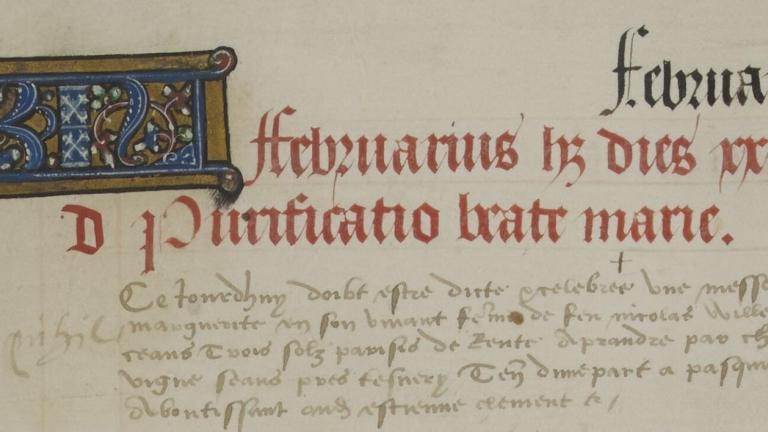 Februa
KL
Februarius hz dies xx
D Purificatio beate marie.
Ce Jourdhuy doibt estre dicte & celebree une messe
nihil marguerite en son vivant feme de feu nicolas Wille
ceans Trois solz parisis de Rente A prandre par ch
vigne seans pres Ten dunepart a pasqui
Abontissant aud estienne clement &c